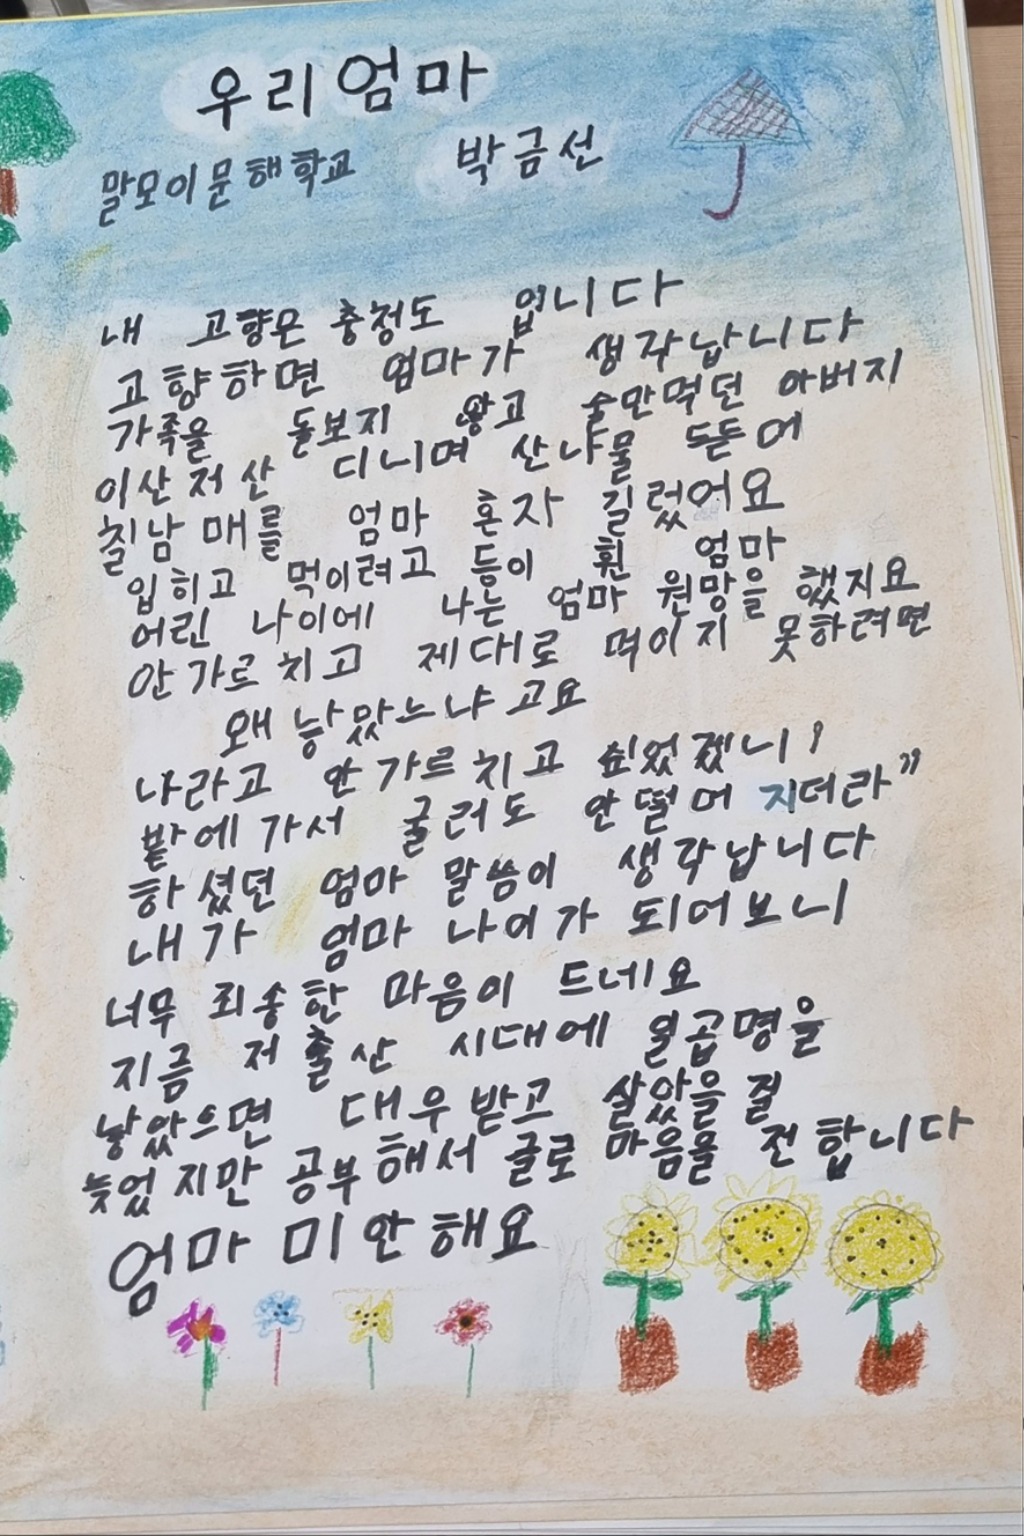 우리엄마
말모이문해학교 박금선
내 고향은 충청도 입니다
고향하면 엄마가 생각납니다
가족을 돌보지 않고 술만먹던 아버지
이산저산 디니며 산나물 뜯어
칠남매를 엄마 혼자 길렀어요
입히고 먹이려고 등이 휜 엄마
어린 나이에 나는 엄마 원망을 했지요
안가르치고 제대로 먹이지 못하려면
왜 낳았느냐고요
나라고 안가르치고 싶었겠니?
밭에가서 굴러도 안떨어지더라"
하셨던 엄마 말씀이 생각납니다
내가 엄마 나이가 되어보니
너무 죄송한 마음이 드네요
지금 저출산 시대에 일곱명을
낳았으면 대우받고 살았을걸
늦었지만 공부해서 글로 마음을 전합니다
엄마미안해요